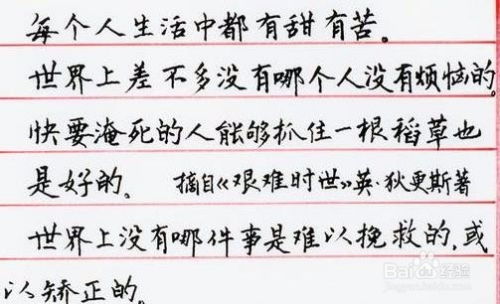 每个人生活中都有甜有苦。
世界上差不多没有哪个人没有烦恼的。
快要淹死的人能够抓住一根稻草也
是好的。 摘自《艰难时世》英·狄更斯著
世界上没有哪件事是难以挽救的,或
以矫正的。
Baidu经验
jingyan.baidu.com